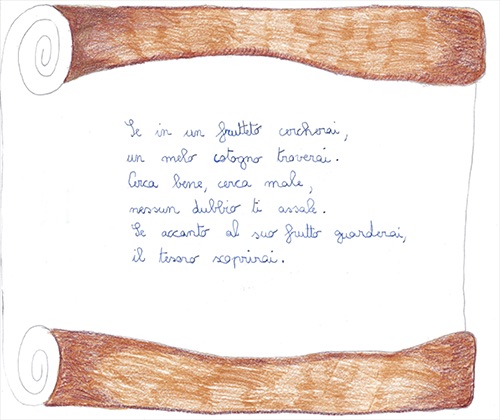 Se in un frutteto cercherai,
un melo cotogno troverai.
Cerca bene, cerca male,
nessun dubbio ti assale.
Se accanto al suo frutto guarderai,
il tesoro scoprirai.